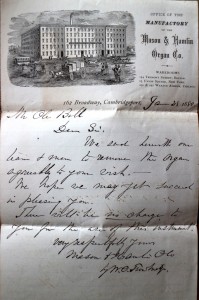 OFFICE OF THE
MANUFACTORY
OF THE
Mason & Hamlin
Organ Co.
WAREROOMS
154 Tremont Street, Boston.
46 East 14th Street
149 Wabash Avenue, Chicago.
162 Broadway, Cambridgeport, Jan 24 1880
Mr Ole Bull
Dear Sir.
We send herewith our
team & men to remove the organ
agreeably to your wish.
We hope we may yet succeed
in pleasing you.
There will be no charge to
you for the use of this instrument.
Very respectfully yours
Mason & Hamlin O Co